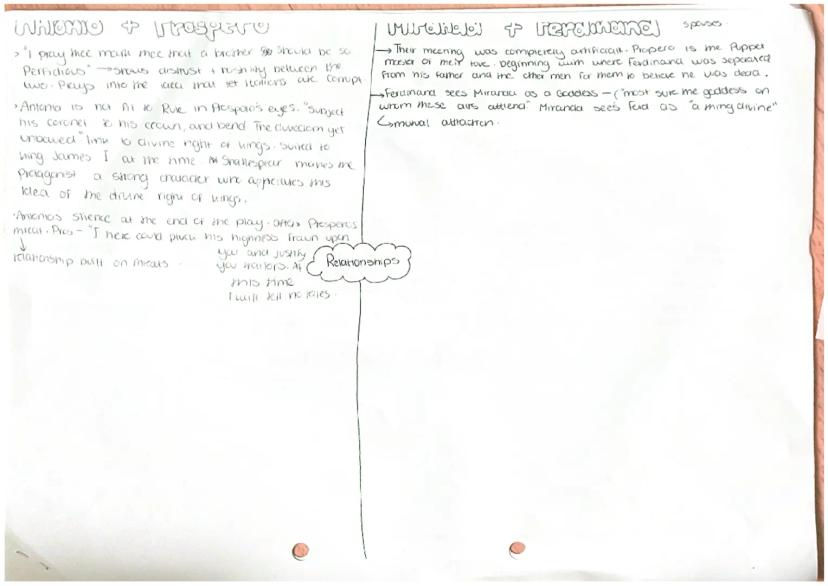 Antonio + Prospero
"I pray thee mark thee that a brother should be so
Perfidious" → shows distrust + hostility between the
two. Plays into the idea that yet Italians are corrupt.
Antonio is not fit to Rule in Prospero's eyes. "Subject
his coronet to his crown, and bend The dukedom yet
unbowed" link to divine right of kings. Suited to
King James I at the time. Shakespear makes the
Protagonist a strong character who appreciates this
Idea of the divine right of kings.
Antonios silence at the end of the play. after Prosperos
threat. Pros - "I here could pluck his highness frown upon
you and justify
you traitors. At
this time
I will tell no tales.
↓
relationship built on threats.
Relationships
Miranda + Ferdinand spouses
→ Their meeting was completely artificial. Propero is the Puppet
master of their love. beginning with where Ferdinand was separated
from his father and the other men for them to believe he was dead.
→ Ferdinand sees Miranda as a Goddess - ("most sure the goddess on
whom these airs attend" Miranda sees Ferd as "a thing divine"
↳ mutual attraction.